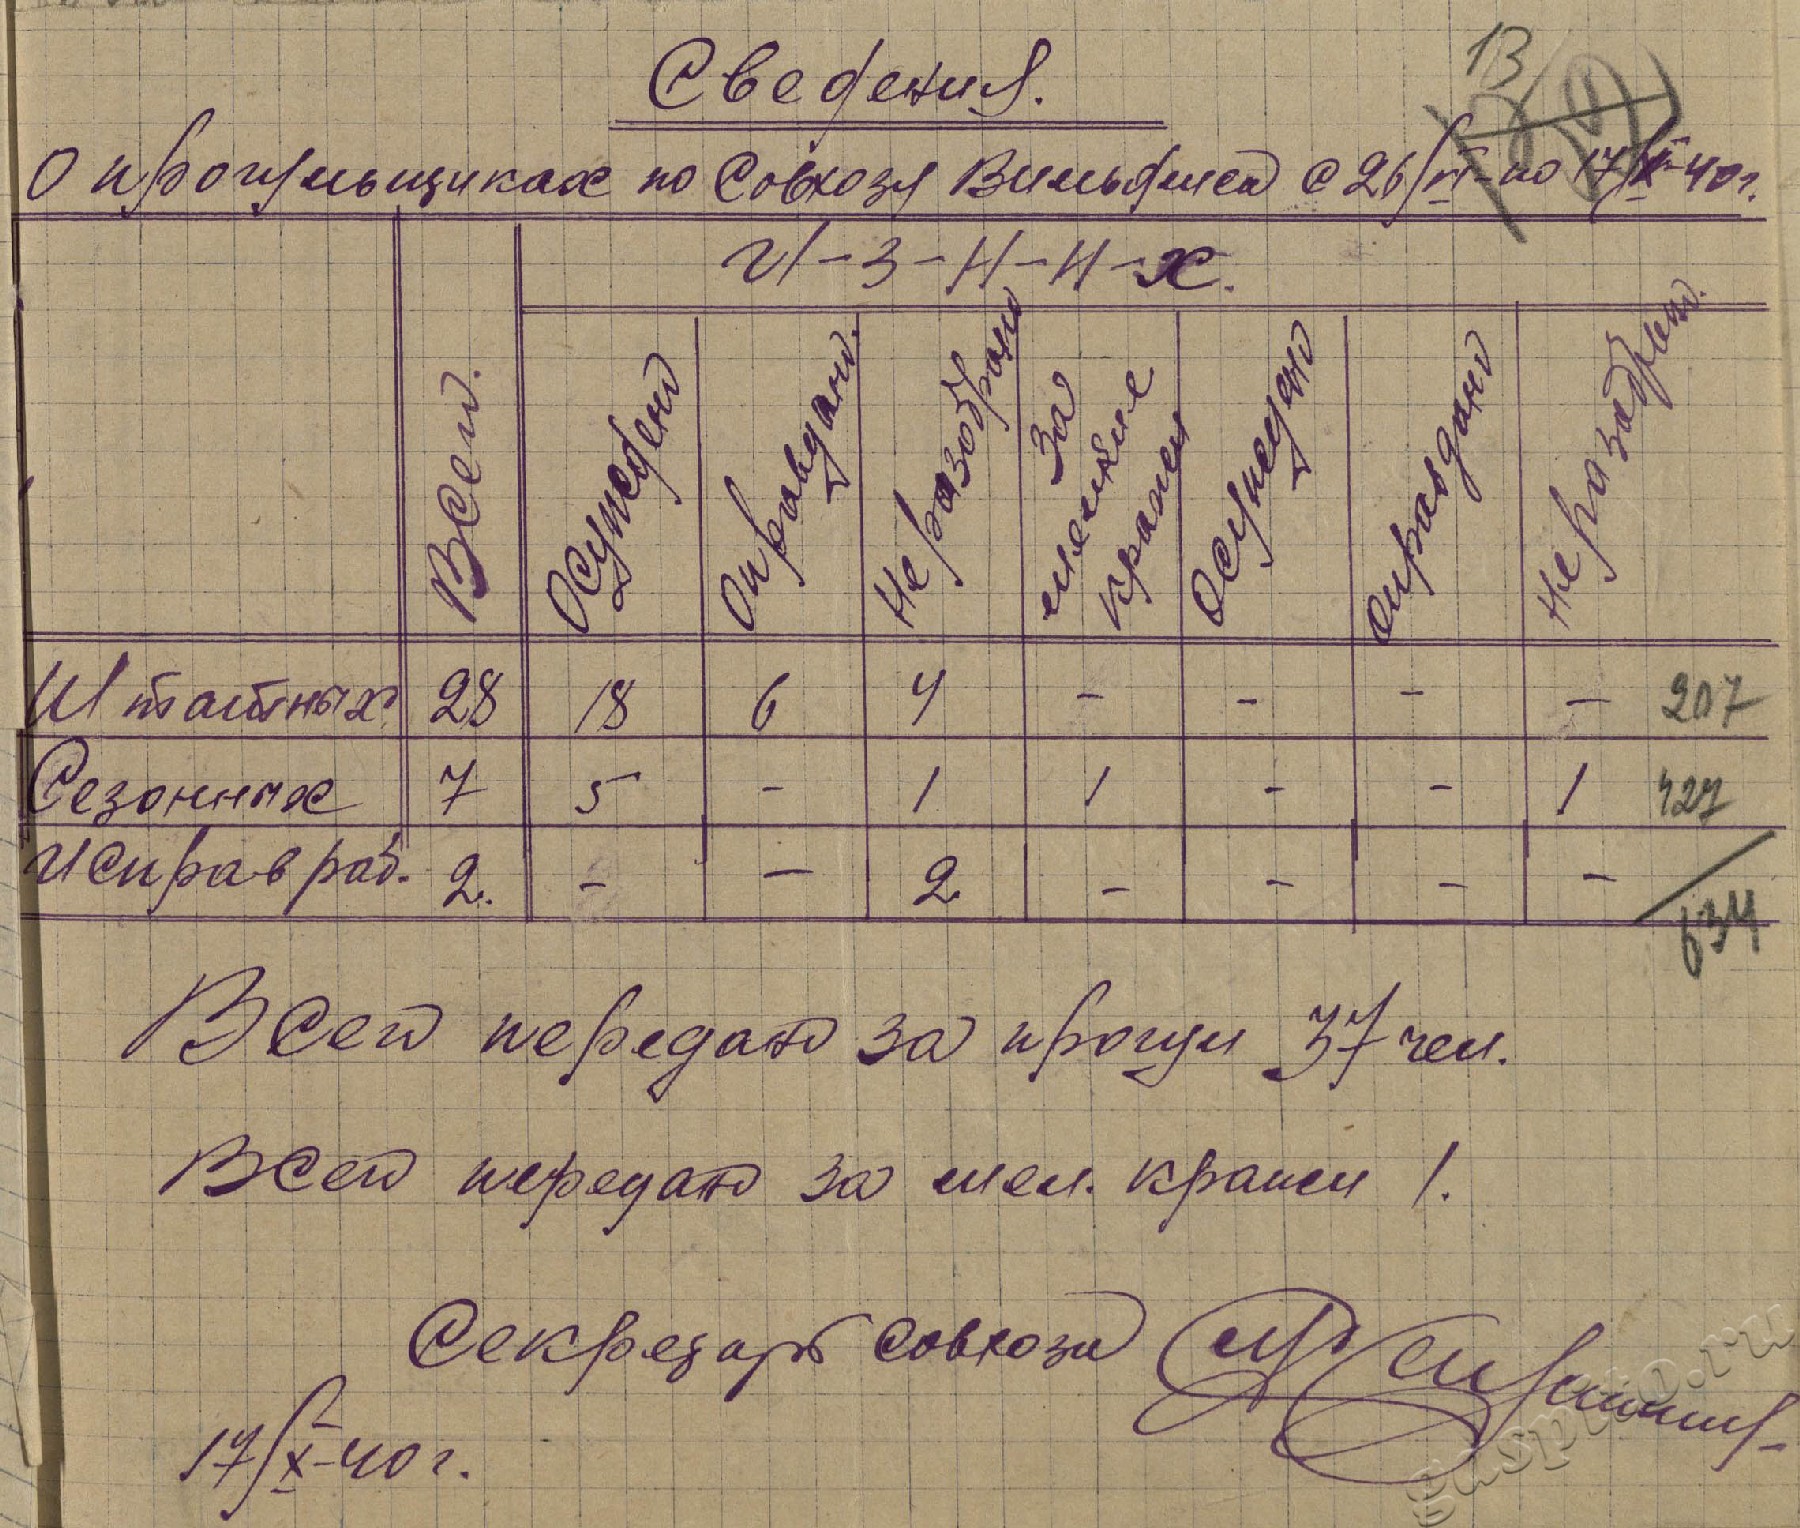 13
Сведения.
О прогульщиках по Совхозу Вильямса с 26/VI - по 17/X-40г.
И-З-Н-И-Х.
Всего.
Осуждено
Оправдан.
Не разобрано
За мелкие кражи
Осуждено
Оправдано
Не разобрано.
Штатных 28 18 6 4 - - - - 207
Сезонных 7 5 - 1 1 - - 1 427
Исправ раб. 2. - - 2 - - - -
634
Всего передано за прогул 37 чел.
Всего передано за мел. кражи 1.
Секретарь совхоза
17/X-40г.
gaspito.ru